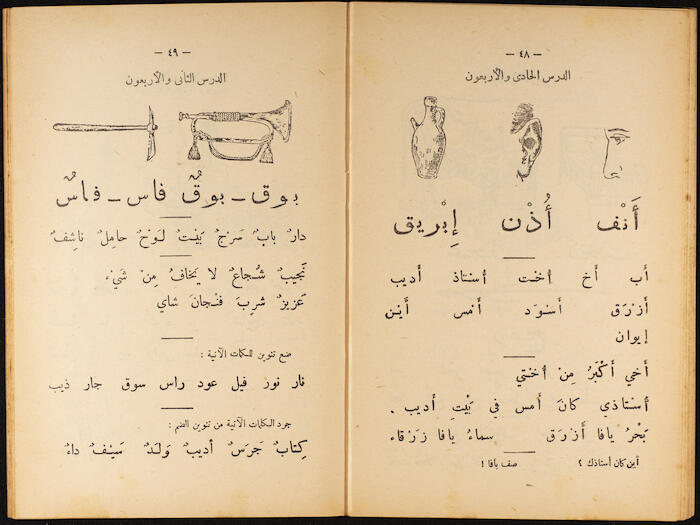 — ٤٨ —
الدرس الحادى والأربعون
أَنْف أُذْن إِبْريق
أَب أَخ أُخْت أُسْتاذ أَديب
أَزْرَق أَسْوَد أَمْس أَيْن
إيوان
أَخي أَكْبَرُ مِنْ أُخْتي
أُسْتاذي كانَ أَمْس في بَيْتِ أَديب .
بَحْرُ يافا أَزْرَق سماءُ يافا زَرْقاء
أين كان أستاذك ؟ صف يافا !
— ٤٩ —
الدرس الثانى والأربعون
بوق - بوقٌ فاس - فاسٌ
دارٌ بابٌ سَرْجٌ بَيْتٌ لَوْحٌ حامِلٌ ناشِفٌ
نَجيبٌ شُجاعٌ لا يَخافُ مِنْ شَيْء
عَزيزٌ شَرِبَ فِنْجانَ شاي
ضع تنوين للكلمات الآتية :
نار نور فيل عود راس سوق جار ذيب
جرد الكلمات الآتية من تنوين الضم :
كِتابٌ جَرَسٌ أَديبٌ وَلَدٌ سَيْفٌ داءٌ